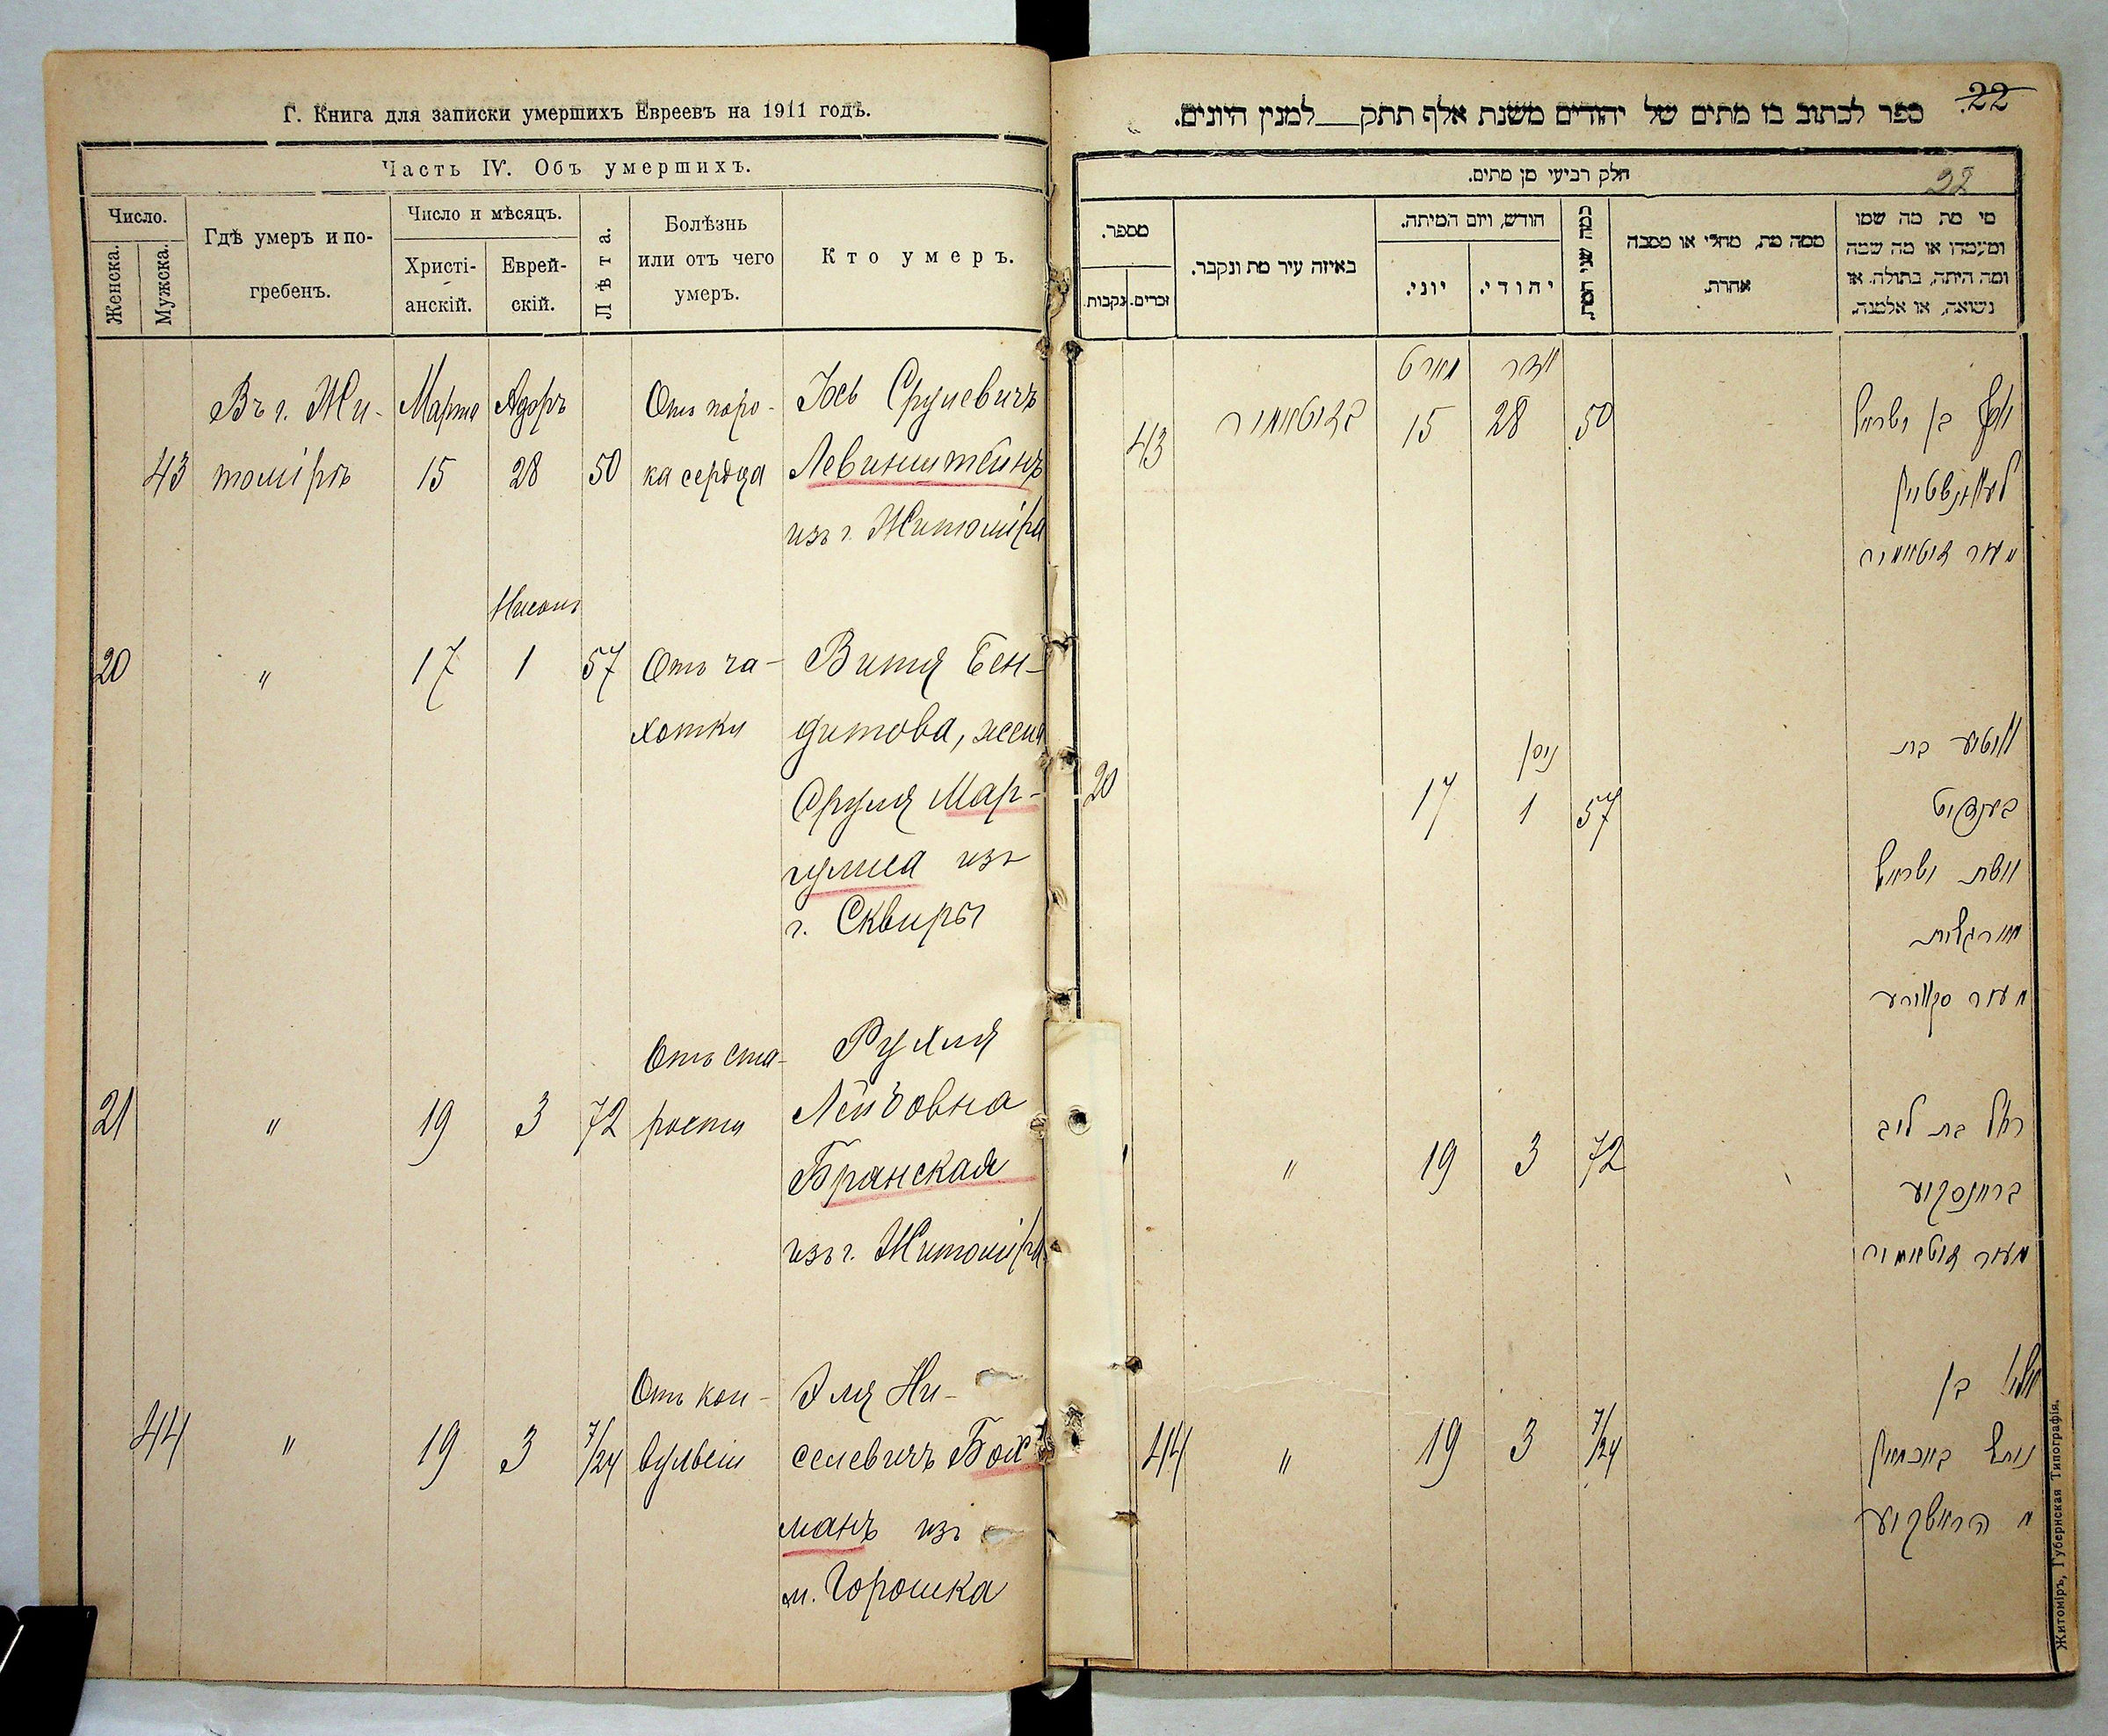 Г. Книга для записки умершихъ Евреевъ на 1911 годъ.
Часть IV. Объ умершихъ.
Число.
Женска.
Мужска.
Гдѣ умеръ и по-
гребенъ.
Число и мѣсяцъ.
Христі-
анскій.
Еврей-
скій.
Лѣта.
Болѣзнь
или отъ чего
умеръ.
Кто умеръ.
Въ г. Жи- Марта Адоръ Отъ поро- Іось Срулевичъ
43 томірѣ 15 28 50 ка сердца Левинштейнъ
изъ г. Житоміра
Нисонъ
20 " 17 1 57 Отъ ча- Витя Бен-
хотки дитова, жена
Сруля Мар-
гулиса изъ
г. Сквиры
Отъ ста- Рухля
21 " 19 3 72 рости Лейбовна
Бранская
изъ г. Житоміра
Отъ кон- Эля Ни-
44 " 19 3 7/24 вульсій селевичъ Бох
манъ изъ
м. Горошка
22
ספר לכתוב בו מתים של יהודים משנת אלף תתק__למנין היונים.
חלק רביעי מן מתים.
22
מספר.
נקבות.
זכרים.
באיזה עיר מת ונקבר.
חודש, ויום המיתה.
יוני.
יהודי.
כמה שני המת
ממה מת, מחלי או מסבה
אחרת.
מי מת מה שמו
ומעמדו או מה שמה
ומה היתה, בתולה, או
נשואה, או אלמנה.
מארט אדר
43 בזיטאמיר 15 28 50 יוסף בן ישראל
לעווינשטיין
מעיר זיטאמיר
ניסן
וויטיע בת
20 17 1 57 בענדיט
אשת ישראל
מארגליות
מעיר סקווירע
" 19 3 72 רחל בת ליב
בראנסקיע
מעיר זיטאמיר
אליי בן
44 " 19 3 7/24 ניסל באכמאן
מ הראשקיע
Житоміръ, Губернская Типографія.